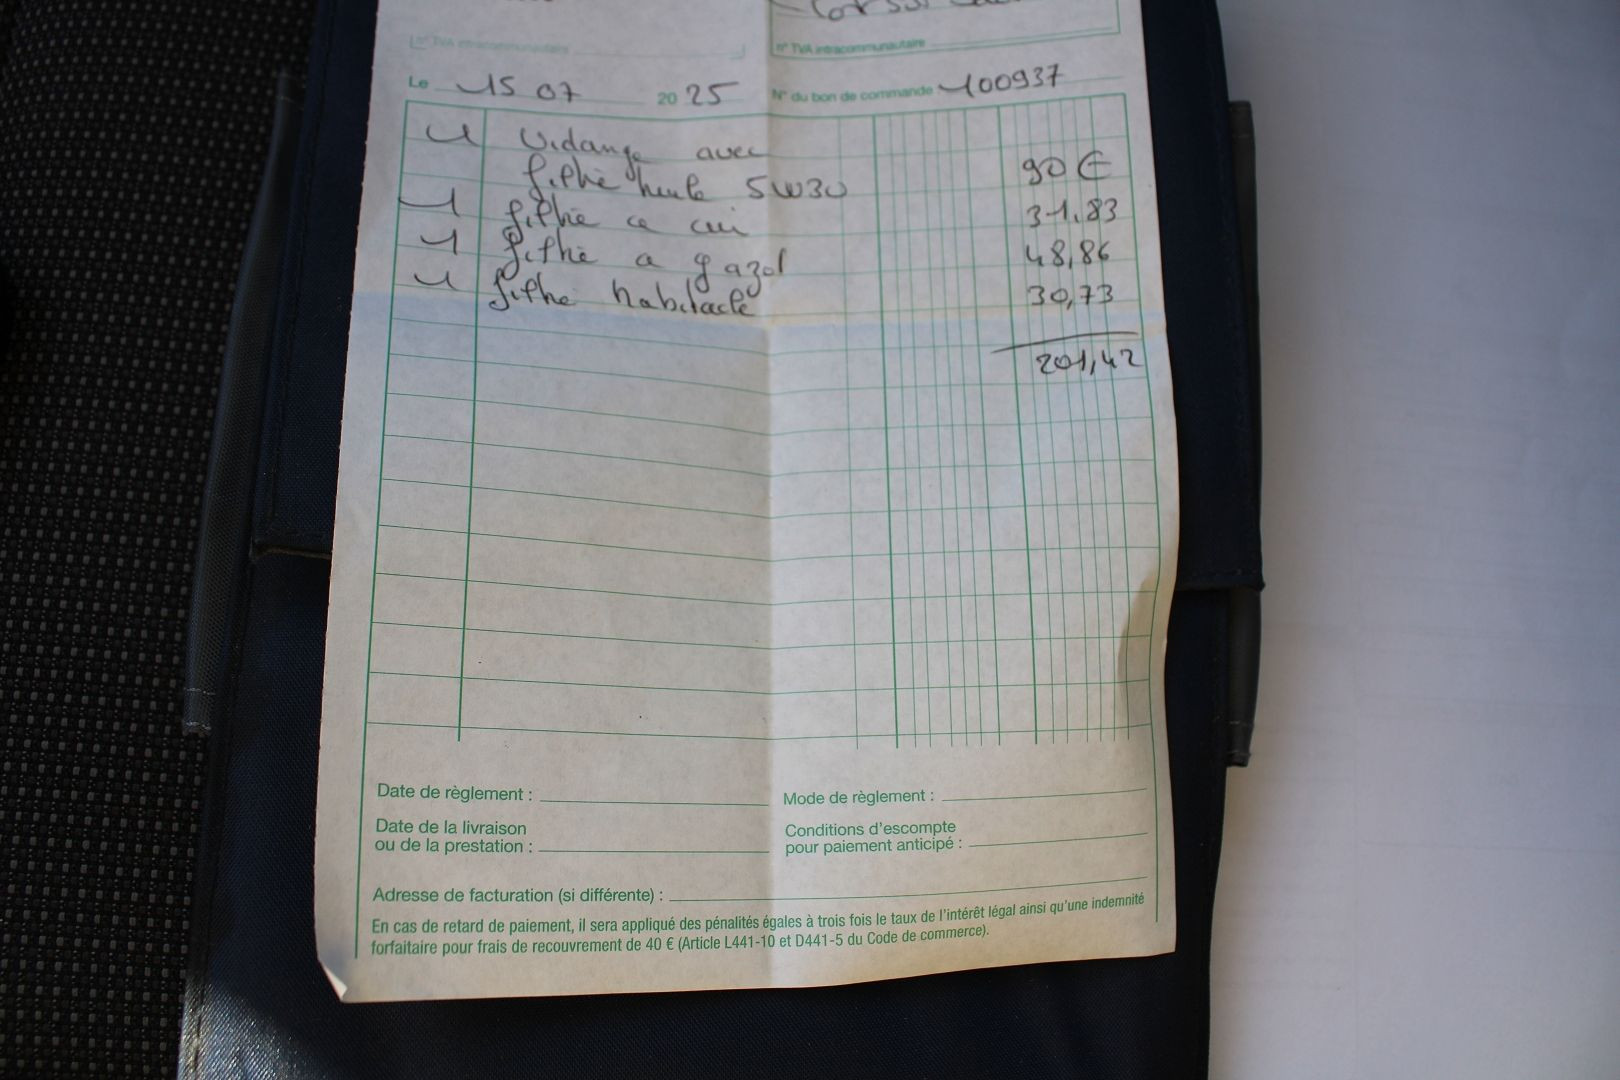 n° TVA intracommunautaire
n° TVA intracommunautaire
Le 15 07 2025 N° du bon de commande 100937
1 Vidange avec
filthe heule 5W30 90 €
1 filthe a air 31,83
1 filthe a gazol 48,86
1 filthe habitacle 30,73
201,42
Date de règlement :
Mode de règlement :
Date de la livraison
ou de la prestation :
Conditions d'escompte
pour paiement anticipé :
Adresse de facturation (si différente) :
En cas de retard de paiement, il sera appliqué des pénalités égales à trois fois le taux de l'intérêt légal ainsi qu'une indemnité
forfaitaire pour frais de recouvrement de 40 € (Article L441-10 et D441-5 du Code de commerce).